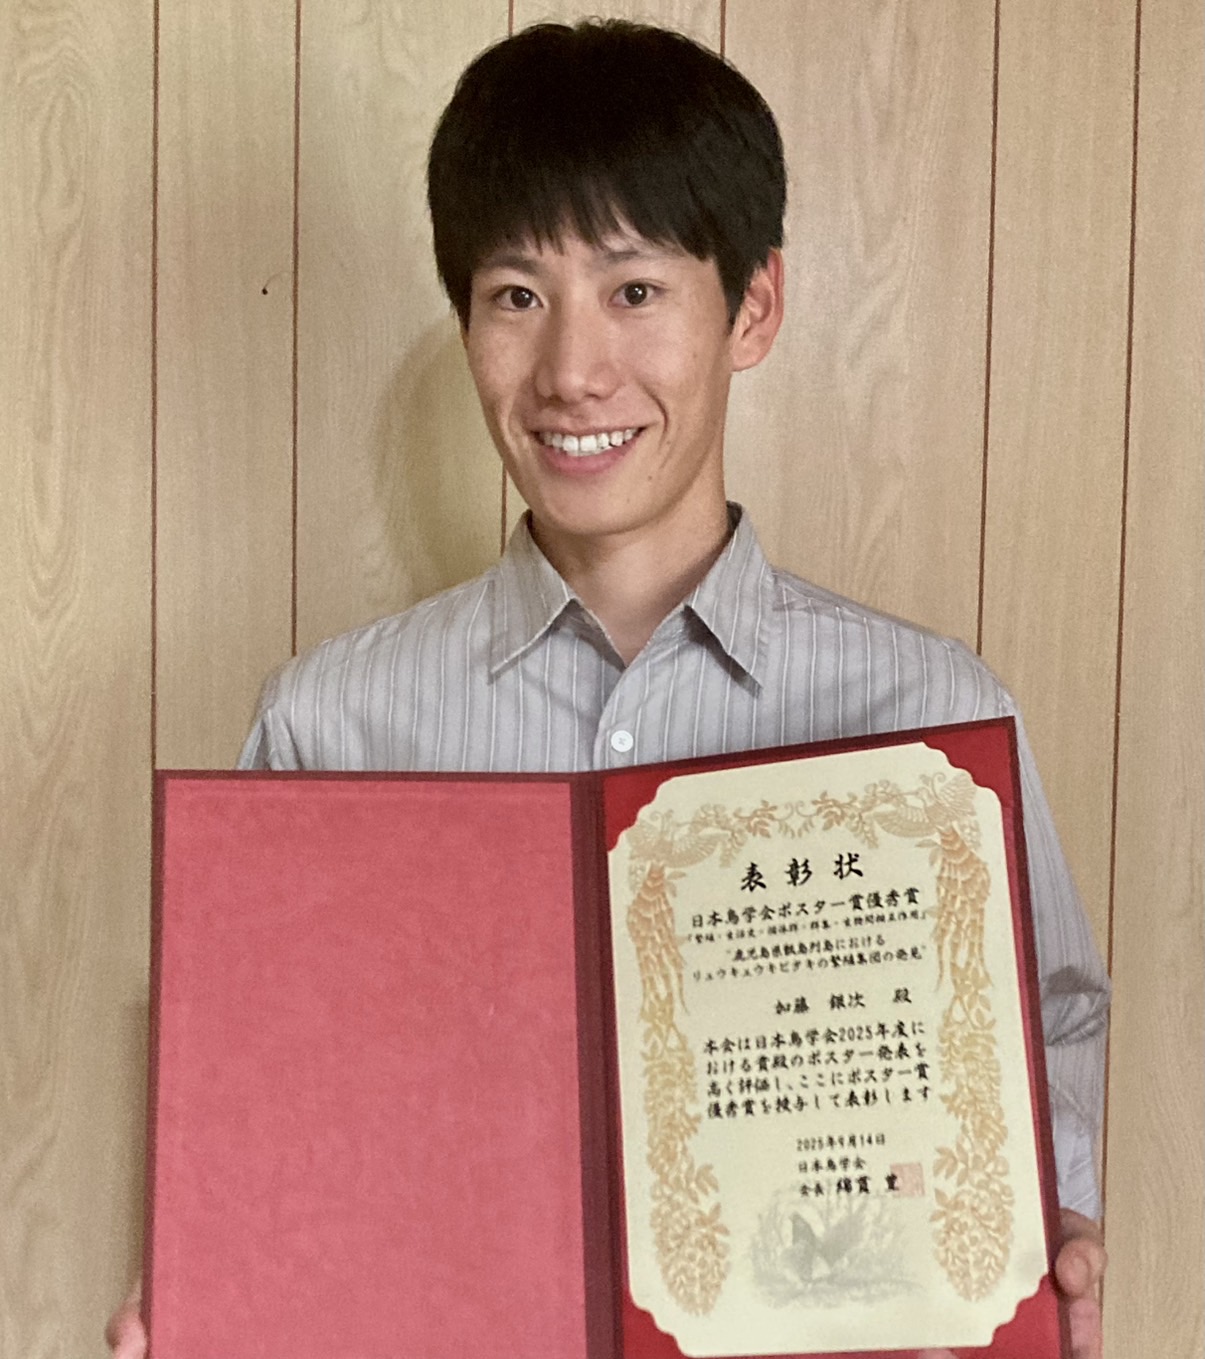 表彰状
日本鳥学会ポスター賞優秀賞
「繁殖・生活史・個体群・群集・生物間相互作用」
"鹿児島県甑島列島における
リュウキュウキビタキの繁殖集団の発見"
加藤 銀次 殿
本会は日本鳥学会2025年度に
おける貴殿のポスター発表を
高く評価し、ここにポスター賞
優秀賞を授与して表彰します
2025年9月14日
日本鳥学会
会長 綿貫 豊